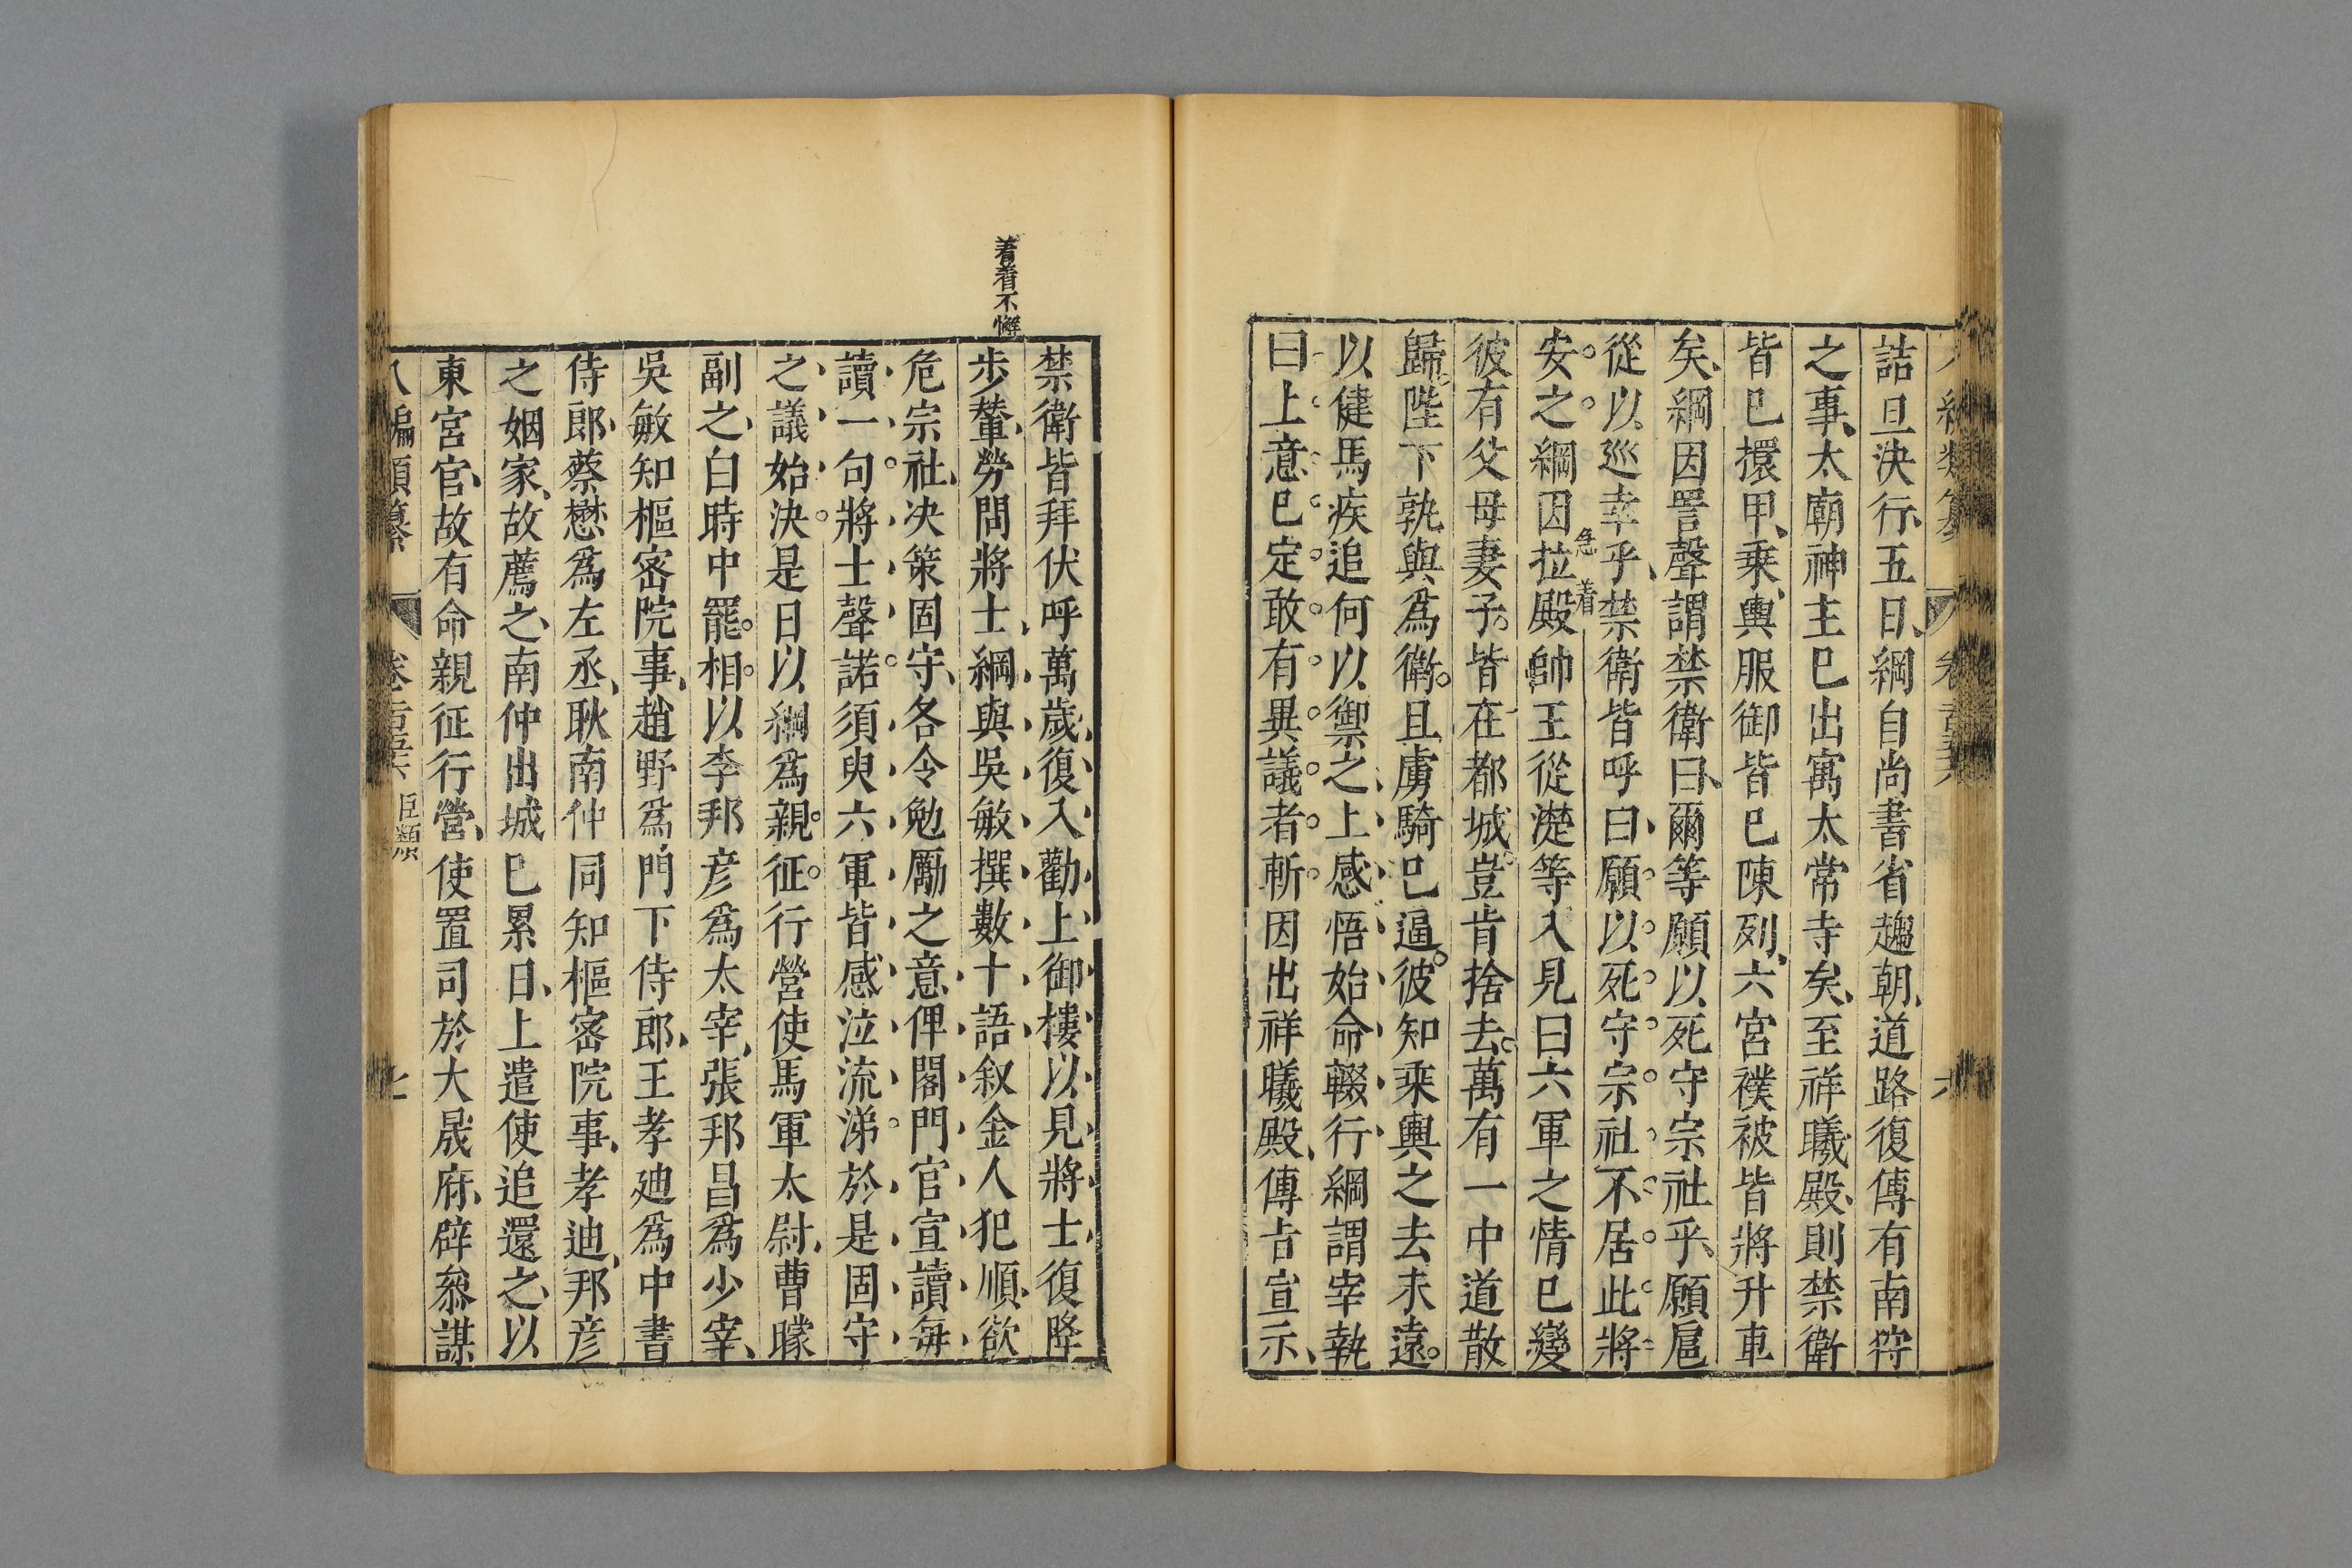 詰旦決行五日綱自尚書省趨朝道路復傳有南狩
之事太廟神主巳出寓太常寺矣至祥曦殿則禁衛
皆巳擐甲乘輿服御皆巳陳列六宮襆被皆將升車
矣綱因詈聲謂禁衛曰爾等願以死守宗社乎願扈
從以巡幸乎禁衛皆呼曰願以死守宗社不居此將
急着
安之綱因拉殿帥王從濋等入見曰六軍之情巳變
彼有父母妻子皆在都城豈肯捨去萬有一中道散
歸陛下孰與為衛且虜騎巳逼彼知乘輿之去未遠
以健馬疾追何以禦之上感悟始命輟行綱謂宰執
曰上意巳定敢有異議者斬因出祥曦殿傳旨宣示
禁衛皆拜伏呼萬歲復入勸上御樓以見將士復降
着着不懈
步輦勞問將士綱與吳敏撰數十語叙金人犯順欲
危宗社决策固守各令勉勵之意俾閣門官宣讀每
讀一句將士聲諾須臾六軍皆感泣流涕於是固守
之議始決是日以綱爲親征行營使馬軍太尉曹曚
副之白時中罷相以李邦彦爲太宰張邦昌爲少宰
吳敏知樞密院事趙野爲門下侍郎王孝廸爲中書
侍郎蔡懋爲左丞耿南仲同知樞密院事孝迪邦彦
之姻家故薦之南仲出城巳累日上遣使追還之以
東宮官故有命親征行營使置司於大晟府辟叅謀
八編類纂 卷 臣類 七